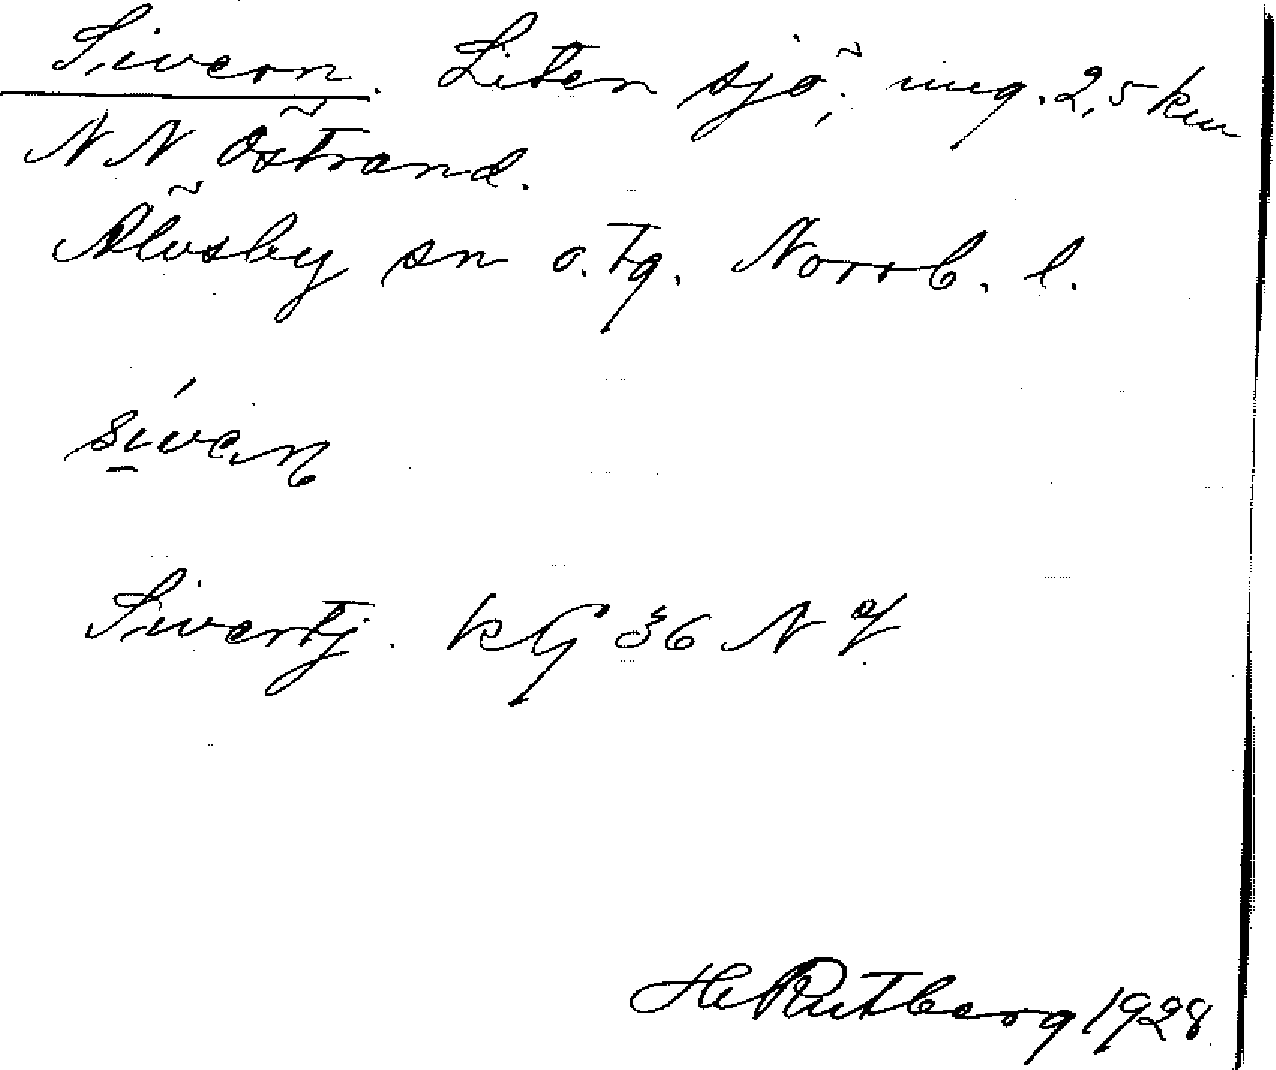 Sivern. Liten sjö, ung. 2,5 km
NN Östrand.
Älvsby sn o. tg. Norrb. l.
Sivertj. KG 36 NV
H Rutberg 1928